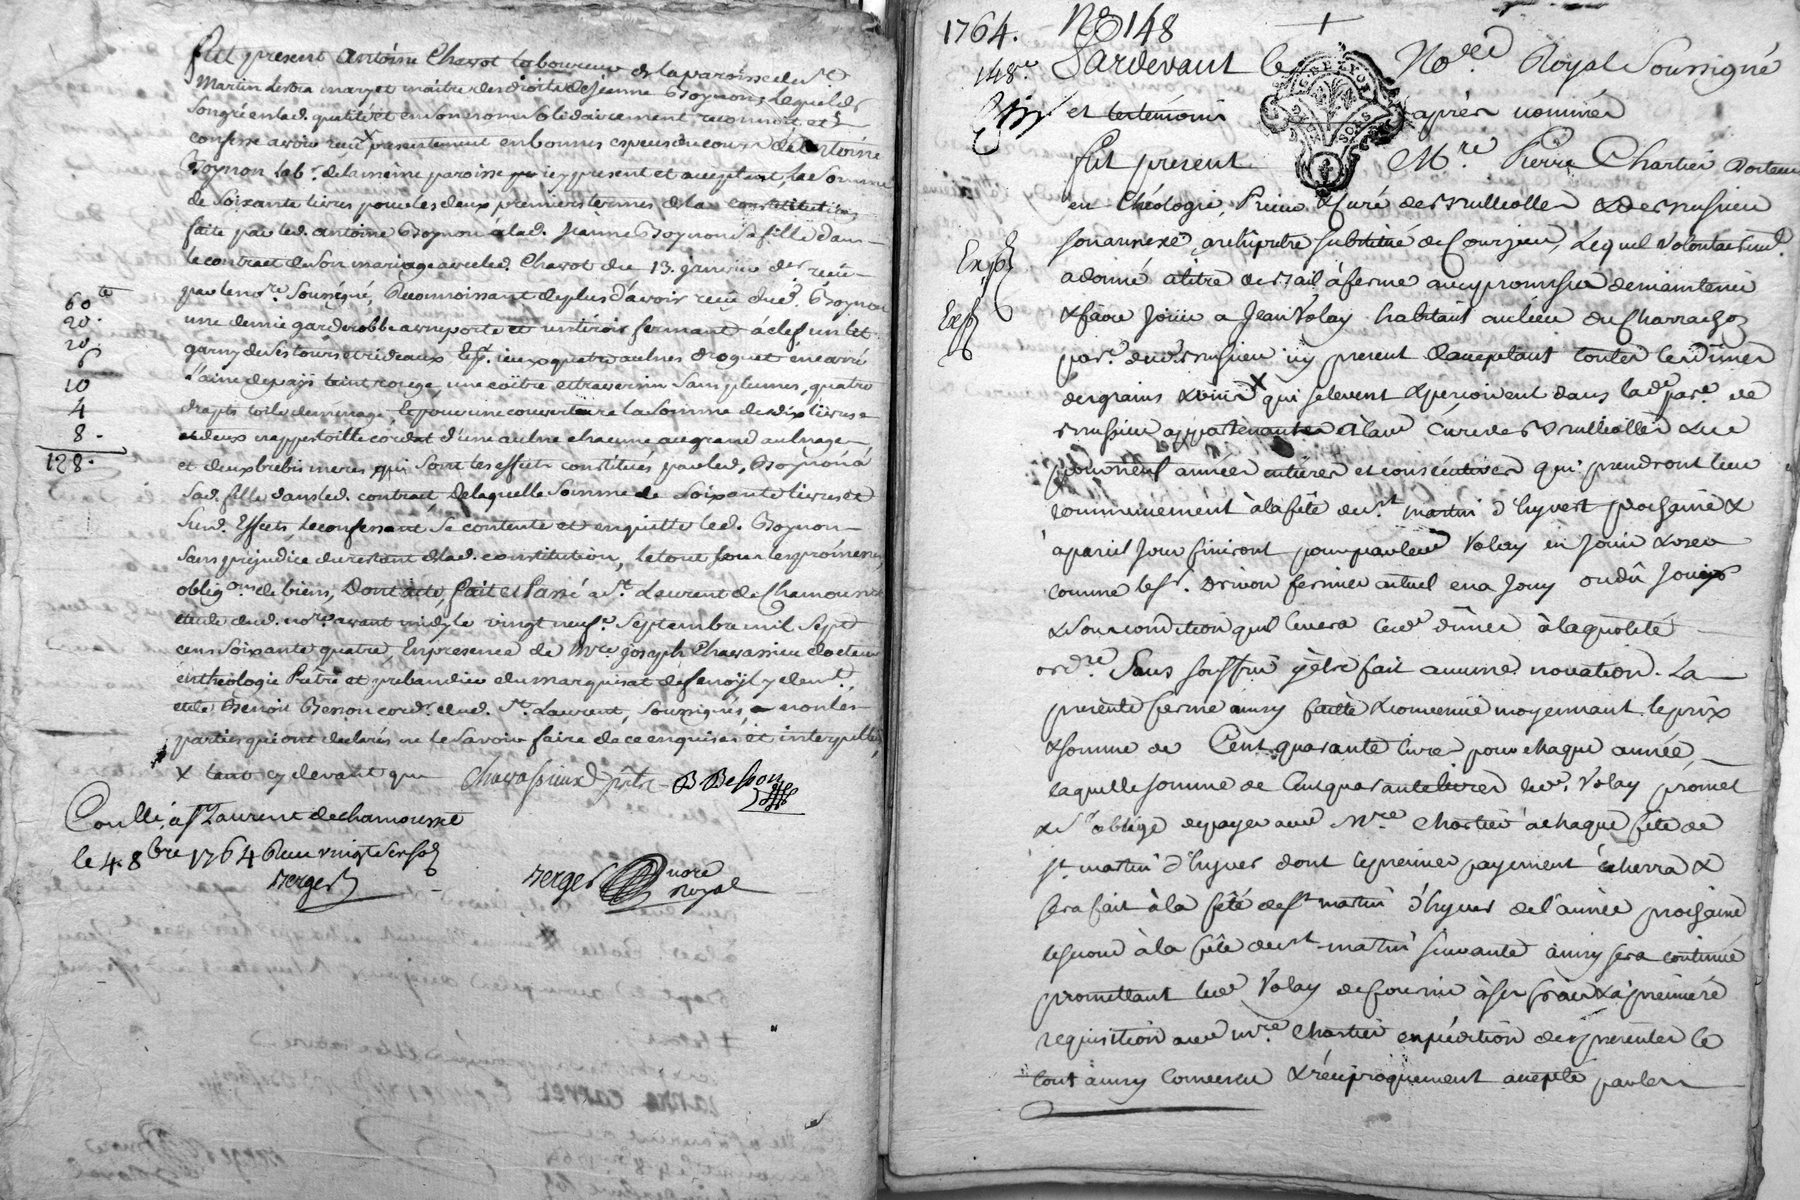 fut present Antoine Chavot laboureur de la paroisse de St
Martin Lestra mary et maitre des droits de Jeanne Boynon, lequel de
son gré en lad. qualité et en son nom solidairement reconnoit et
confesse avoir reçu x presentement en bonnes especes de cours de Antoine
Boynon lab.r de la même paroisse icy present et acceptant, la somme
de soixante livres pour les deux premiers termes de la constitution
faite par led. Antoine Boynon à lad. Jeanne Boynon sa fille dans
le contract de son mariage avec led. Chavot du 13. janvier der reçu
par le no.re soussigné, Reconnoissant de plus d'avoir reçu dud. Boynon
60 tt
une demie garderobbe a une porte et un tiroir fermant à clef un lit
20.
garny de ses tours et rideaux quatre aulnes droguet
20.
laine de pays teint rouge, une coitre et traversin sans plumes, quatre
10
draps toile de ménage la somme de dix livres
4
deux nappes toille d'une aulne chacune au grand aulnage
8.
et deux brebis meres qui sont les effets constitués par led. Boynon à
128.
sad. fille dans led. contract De laquelle somme de soixante livres et
surd. Effects, le confessant se contente et en quitte led. Boynon
sans prejudice du restant de lad. constitution, le tout sous les promesses
oblig.ons de biens, Dont acte, fait et Passé a St. Laurent de Chamousset
etude dud. no.re avant midy le vingt neuf.e Septembre mil sept
cens soixante quatre, En presence de Mre joseph Chavassieu docteur
en theologie Prêtre et prebandier du marquisat de
et de Benoit Besson cord.r dud. St. Laurent, soussignés, et non les
parties qui ont declarés ne le savoir faire de ce enquises et interpellées
x tant cy devant que
Chavassieux prêtre
B Besson
Conllé à St Laurent de chamousset
le 4. 8bre 1764 Reçu vingt six sols
Berger
Berger nore Royal
1764. No 148
148e Pardevant le No.re Royal Soussigné
et les témoins après nommés
fut present Mre. Pierre Chartier Docteur
en Théologie, Prieur & Curé de Brullioles & de Brussieu
son annexe, archiprêtre substitué de Courzieu, lequel volontairemt.
a donné a titre de Bail à ferme avec promesse de maintenir
Exp
& faire jouir a Jean Volay habitant au lieu du Charrachoz
Exp
par.e dud. Brussieu icy present & acceptant toutes les dimes
des grains & vins x qui se levent & perçoivent dans lad. par.e de
Brussieu appartenantes à la cure de Brullioles & ce
pour neuf années entieres et consécutives qui prendront leur
commencement à la fête de St martin d'hyvert prochaine &
à pareil jour finiront pour par led. Volay en jouir & user
comme le Sr. Drivon fermier actuel en a jouy ou dû jouir
& sous condition quil levera lesd. dimes à la quotité
ord.re sans souffrir y être fait aucune novation. La
presente ferme ainsy faitte & convenue moyennant le prix
& somme de Cent quarante livres pour chaque année,
laquelle somme de Cent quarante livres led. Volay promet
& s'oblige de payer aud. Mre Chartier à chaque fête de
St. martin d'hyver dont le premier payement écherra &
sera fait à la fête de St martin d'hyver de l'année prochaine
le second à la fête de St martin suivante ainsy sera continué
promettant led. Volay de fournir à ses frais & à premiere
requisition aud. Mre. Chartier expédition des presentes le
tout ainsy convenu & réciproquement accepté par les